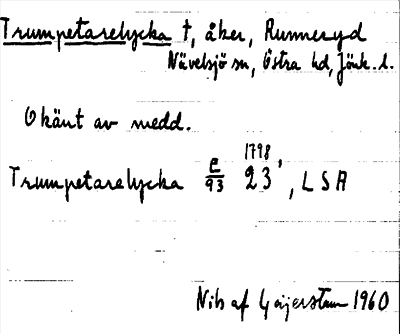 Trumpetarelycka †, åker, Runneryd
Nävelsjö sn, Östra hd, Jönk. l.
Okänt av medd.
Trumpetarelycka E/93 1798, 23, LSA
Nils af Geijerstam 1960